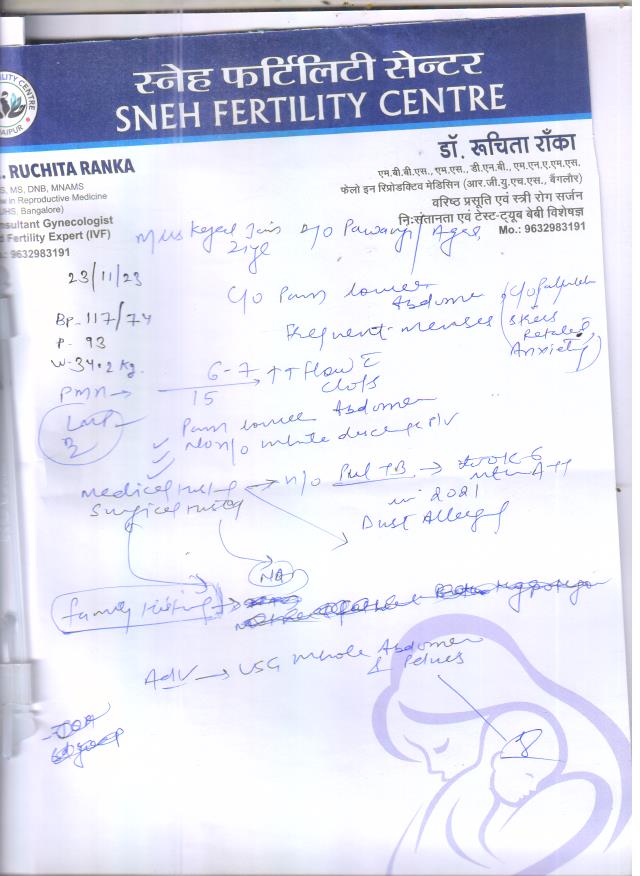 स्नेह फर्टिलिटी सेन्टर
SNEH FERTILITY CENTRE
ILITY CENTRE
JAIPUR
. RUCHITA RANKA
S, MS, DNB, MNAMS
w in Reproductive Medicine
UHS, Bangalore)
nsultant Gynecologist
d Fertility Expert (IVF)
.: 9632983191
डॉ. रूचिता राँका
एम.बी.बी.एस., एम.एस., डी.एन.बी., एम.एन.ए.एम.एस.
फेलो इन रिप्रोडक्टिव मेडिसिन (आर.जी.यु.एच.एस., बैंगलोर)
वरिष्ठ प्रसूति एवं स्त्री रोग सर्जन
निःसंतानता एवं टेस्ट-ट्यूब बेबी विशेषज्ञ
Mo.: 9632983191
Jain D/o Pawanji
21ye
23/11/23
C/o Pain lower Abdomen
Frequent menses
C/o Palpitation
Stress Related Anxiety
BP- 117/74
P- 93
W-34.2 kg.
PMH → 6-7/15 ↑↑ flow c clots
LMP
Pain lower Abdomen
No h/o white discharge P/V
Medical History → h/o Pul TB → took 6 mth ATT
in 2021
Surgical History
Dust Allergy
NAD
Family History →
Adv → USG Whole Abdomen & Pelvis